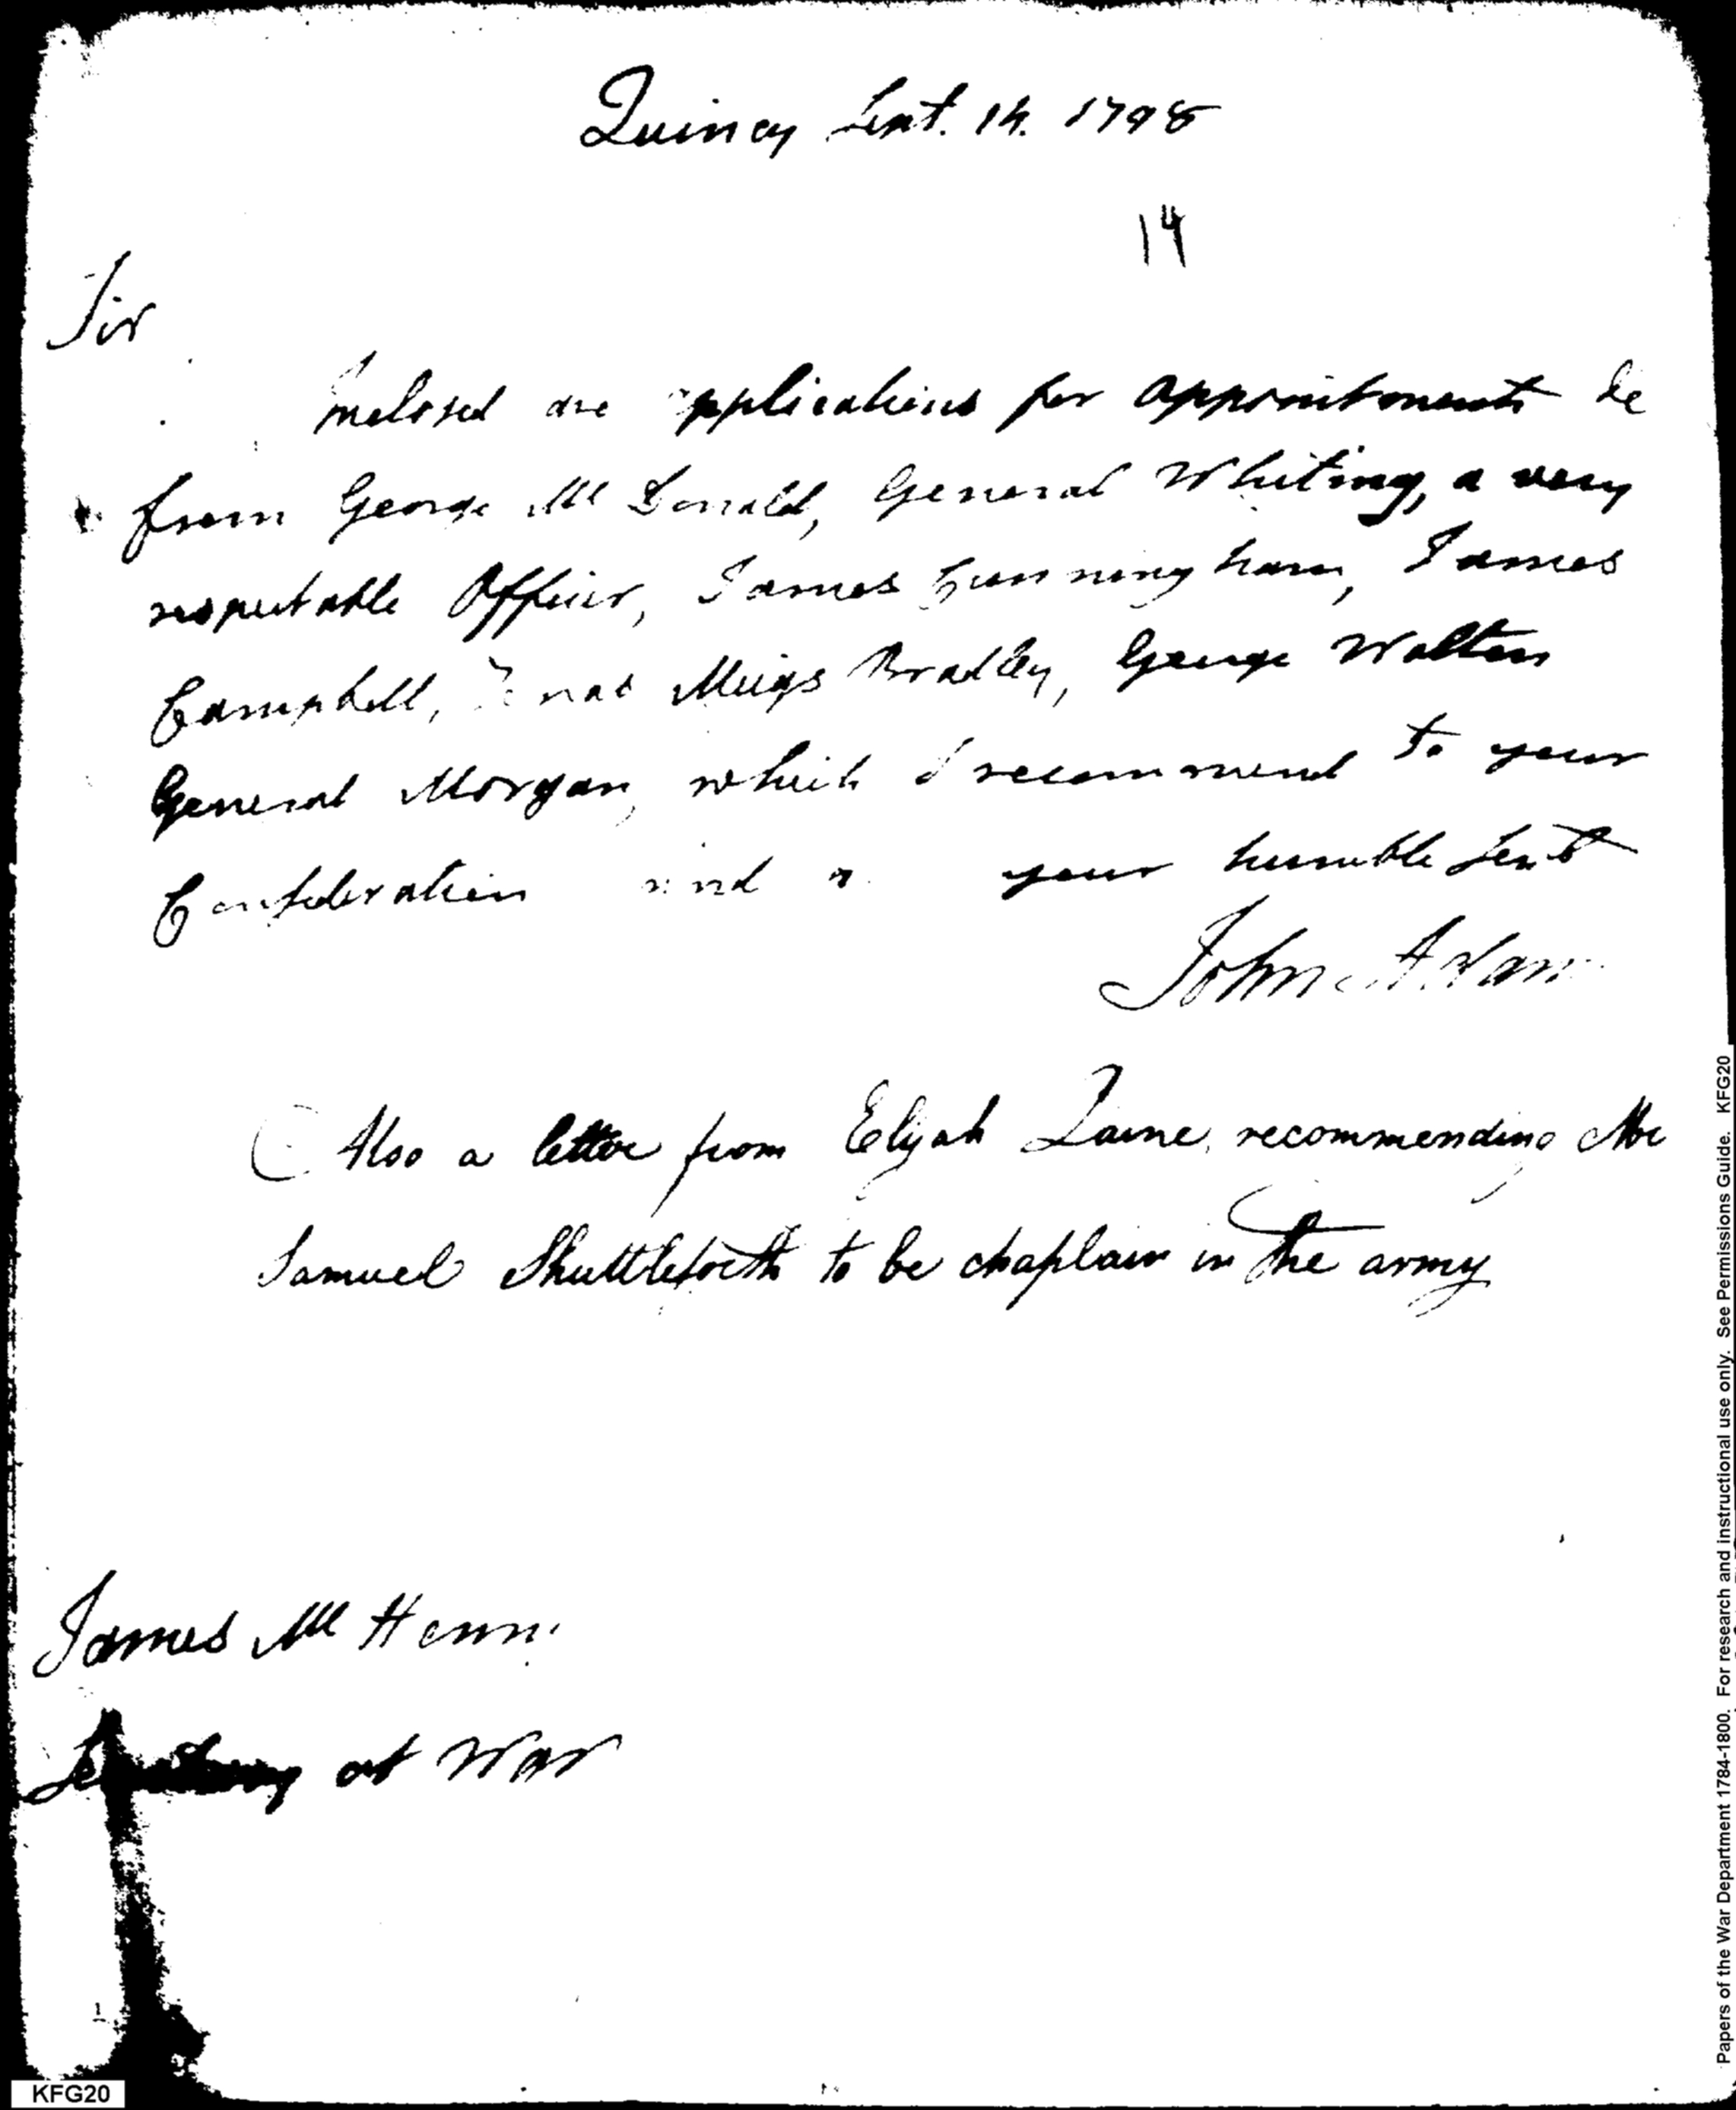 Quincy Sept. 14. 1798
14
Sir
Inclosed are applications for appointments &c
from George McDonald, General Whiting, a very
respectable Officer, James Cunningham, James
Campbell, Meigs Bradley, George Walton
General Morgan, which I recommend to your
Consideration and your humble Servt
John Adams
Also a letter from Elijah Paine, recommending Mr
Samuel Shuttlesworth to be chaplain in the army
James McHenry
Secretary at War
KFG20
Papers of the War Department 1784-1800. For research and instructional use only. See Permissions Guide. KFG20